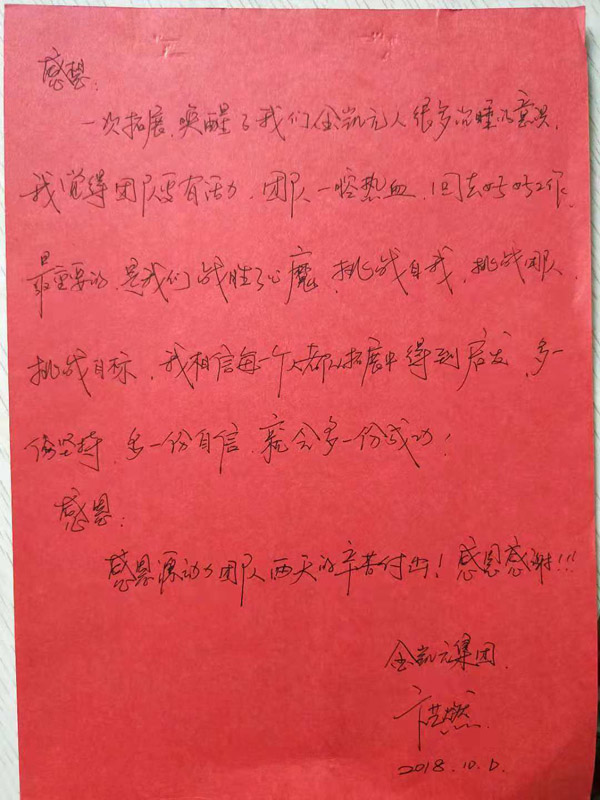 感想:
一次拓展,唤醒了我们金凯元人很多沉睡的意识,
我觉得团队要有活力,团队一腔热血,回去好好工作,
最重要的,是我们战胜了心魔,挑战自我,挑战团队,
挑战目标,我相信每一个人都从拓展中得到启发,多一
份坚持,多一份自信,就会多一份成功!
感恩:
感恩源动力团队两天的辛苦付出!感恩感谢!!!
金凯元集团.
2018.10.